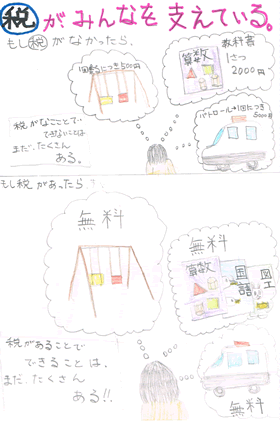 税がみんなを支えている。
もし税がなかったら、
につき500円
教科書
1さつ
2000円
算数
パトロール1回につき
5000円
税がなことで
できないことは
まだ、たくさん
ある。
もし税があったら、
無料
無料
算数
国語
図工
税があることで
できることは、
まだ、たくさん
ある!!
無料